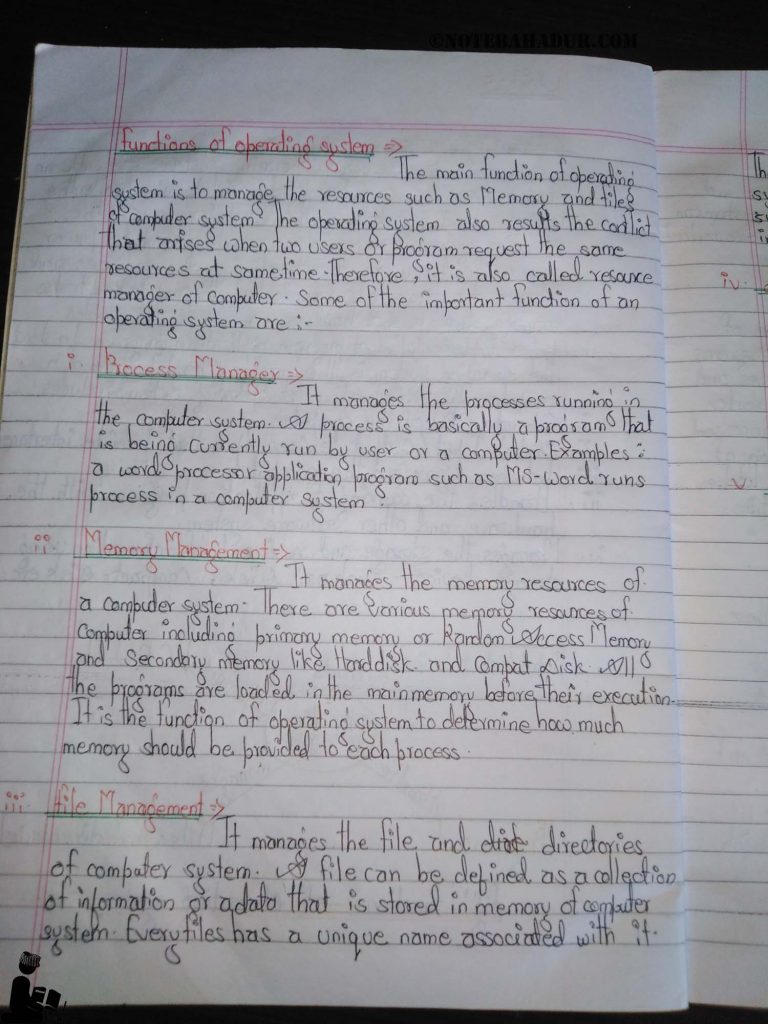 ©NOTEBAHADUR.COM
functions of operating system =>
The main function of operating
system is to manage the resources such as Memory and files
of computer system. The operating system also results the conflict
that arises when two users or program request the same
resources at same time. Therefore, it is also called resource
manager of computer. Some of the important function of an
operating system are :-
i. Process Manager =>
It manages the processes running in
the computer system. A process is basically a program that
is being currently run by user or a computer. Examples:
a word processor application program such as MS-Word runs
process in a computer system.
ii Memory Management =>
It manages the memory resources of
a computer system. There are various memory resources of
Computer including primary memory or Random Access Memory
and Secondary memory like Harddisk and Compat Disk. All
the programs are loaded in the main memory before their execution.
It is the function of operating system to determine how much
memory should be provided to each process.
iii. file Management =>
It manages the file and directories
of computer system. A file can be defined as a collection
of information or a data that is stored in memory of computer
system. Every files has a unique name associated with it.
Th
sy
iv.
v